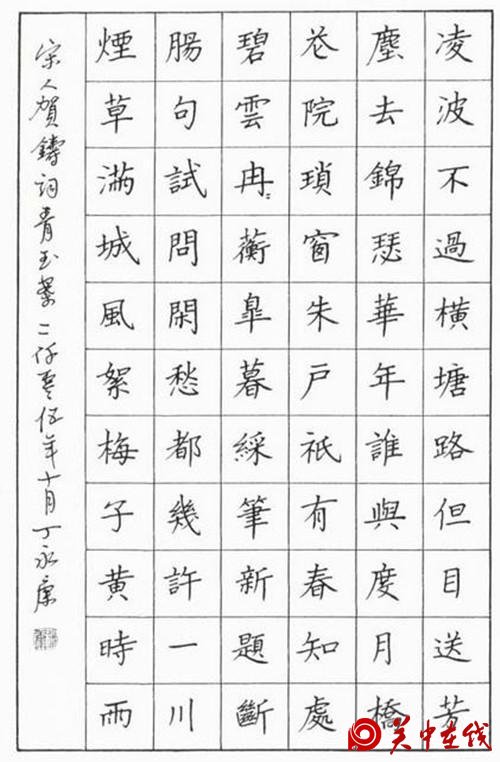 凌波不過橫塘路但目送芳
塵去錦瑟華年誰與度月橋
花院瑣窗朱戶祇有春知處
碧雲冉〻蘅皐暮綵筆新題斷
腸句試問閑愁都幾許一川
煙草滿城風絮梅子黃時雨
宋人賀鑄詞青玉案二仟零伍年十月丁永康
关中在线